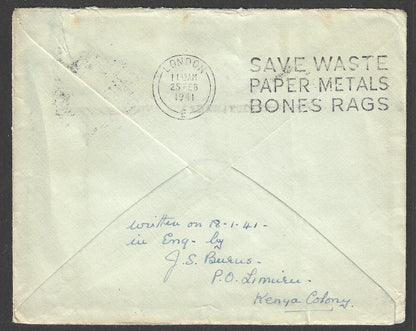 LONDON
11 0 AM
25 FEB
1941
E
SAVE WASTE
PAPER·METALS
BONES RAGS
written on 18-1-41-
in Eng- by
J. S. Burns-
P.O. Limuru-
Kenya Colony.